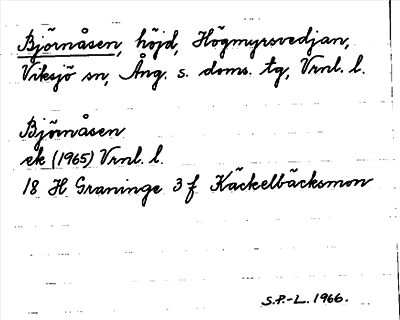 Björnåsen, höjd, Högmyrsvedjan,
Viksjö sn, Ång. s. doms. tg, Vrnl. l.
Björnåsen
ek (1965) Vrnl. l.
18 H Graninge 3 f Käckelbäcksmon
S.P.-L. 1966.